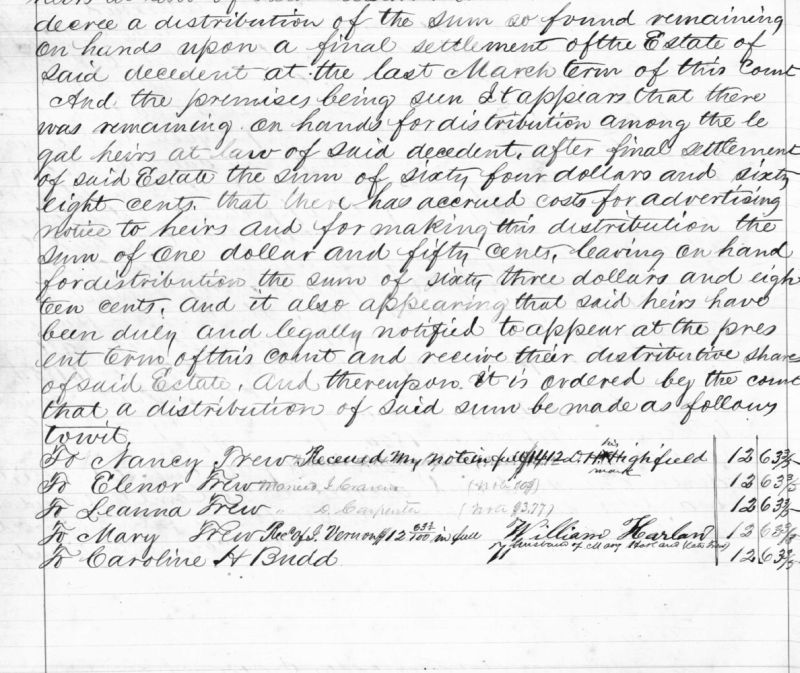 decree a distribution of the sum so found remaining
on hands upon a final settlement of the Estate of
said decedent at the last March term of this Court
And the premises being seen It appears that there
was remaining on hands for distribution among the le
gal heirs at law of said decedent, after final settlement
of said Estate the sum of sixty four dollars and sixty
eight cents. that there has accrued costs for advertising
notice to heirs and for making this distribution the
sum of one dollar and fifty cents, leaving on hand
for distribution the sum of sixty three dollars and eigh
teen cents. And it also appearing that said heirs have
been duly and legally notified to appear at the pres
ent term of this court and receive their distributive shares
of said Estate. And thereupon It is ordered by the court
that a distribution of said sum be made as follows
towit.
To Nancy Trew Received my note in full Highfield 12 63 3/5
his
mark
To Elenor Trew Married 12 63 3/5
To Leanna Trew " Carpenter 12 63 3/5
To Mary Trew Recd of J. Vernon $12 63½/100 in full William Harlan 12 63 3/5
husband of Mary
To Caroline H Budd 12 63 3/5